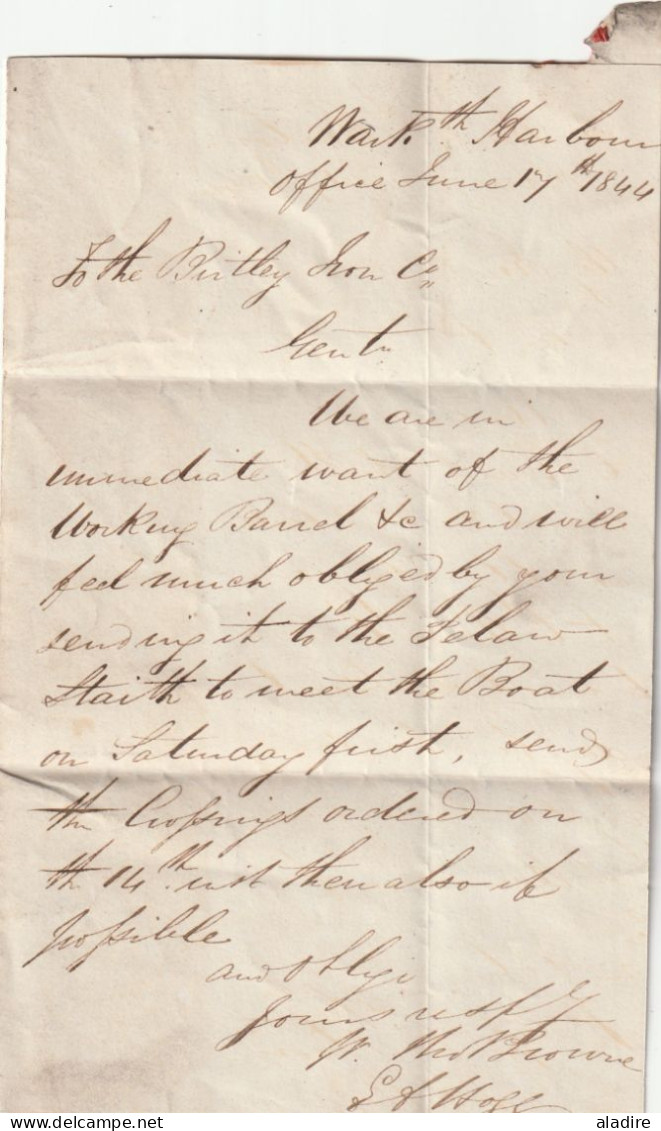 Wark.th Harbour
Office June 17th 1844
To the Birtley Iron Co
Gentn
We are in
immediate want of the
Working Barrel &c and will
feel much obliged by your
sending it to the Pelaw
Staith to meet the Boat
on Saturday first, send
the Crossings ordered on
the 14th inst then also if
possible
and Oblige
Yours respy
Thos Browne
aladire